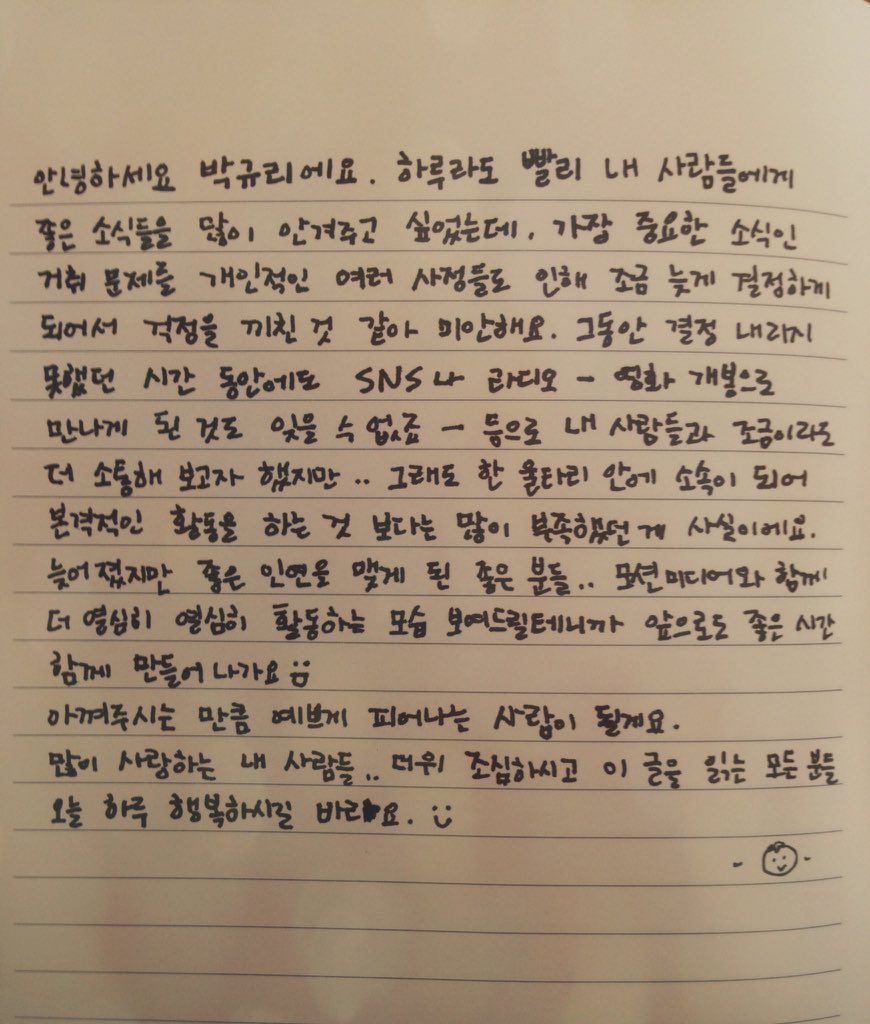 안녕하세요 박규리에요. 하루라도 빨리 내 사람들에게
좋은 소식들을 많이 안겨주고 싶었는데, 가장 중요한 소식인
거취 문제를 개인적인 여러 사정들로 인해 조금 늦게 결정하게
되어서 걱정을 끼친 것 같아 미안해요. 그동안 결정 내리지
못했던 시간 동안에도 SNS나 라디오 - 영화 개봉으로
만나게 된 것도 잊을 수 없죠 - 등으로 내 사람들과 조금이라도
더 소통해 보고자 했지만.. 그래도 한 울타리 안에 소속이 되어
본격적인 활동을 하는 것 보다는 많이 부족했던게 사실이에요.
늦어졌지만 좋은 인연을 맺게 된 좋은 분들.. 모션미디어와 함께
더 열심히 열심히 활동하는 모습 보여드릴테니까 앞으로도 좋은 시간
함께 만들어 나가요
아껴주시는 만큼 예쁘게 피어나는 사람이 될게요.
많이 사랑하는 내 사람들.. 더위 조심하시고 이 글을 읽는 모든 분들
오늘 하루 행복하시길 바라요. :)